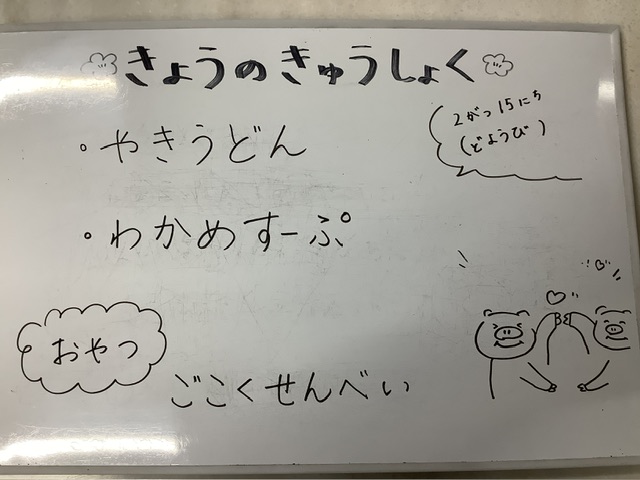 きょうのきゅうしょく
2がつ15にち
(どようび)
・やきうどん
・わかめすーぷ
おやつ
ごこくせんべい